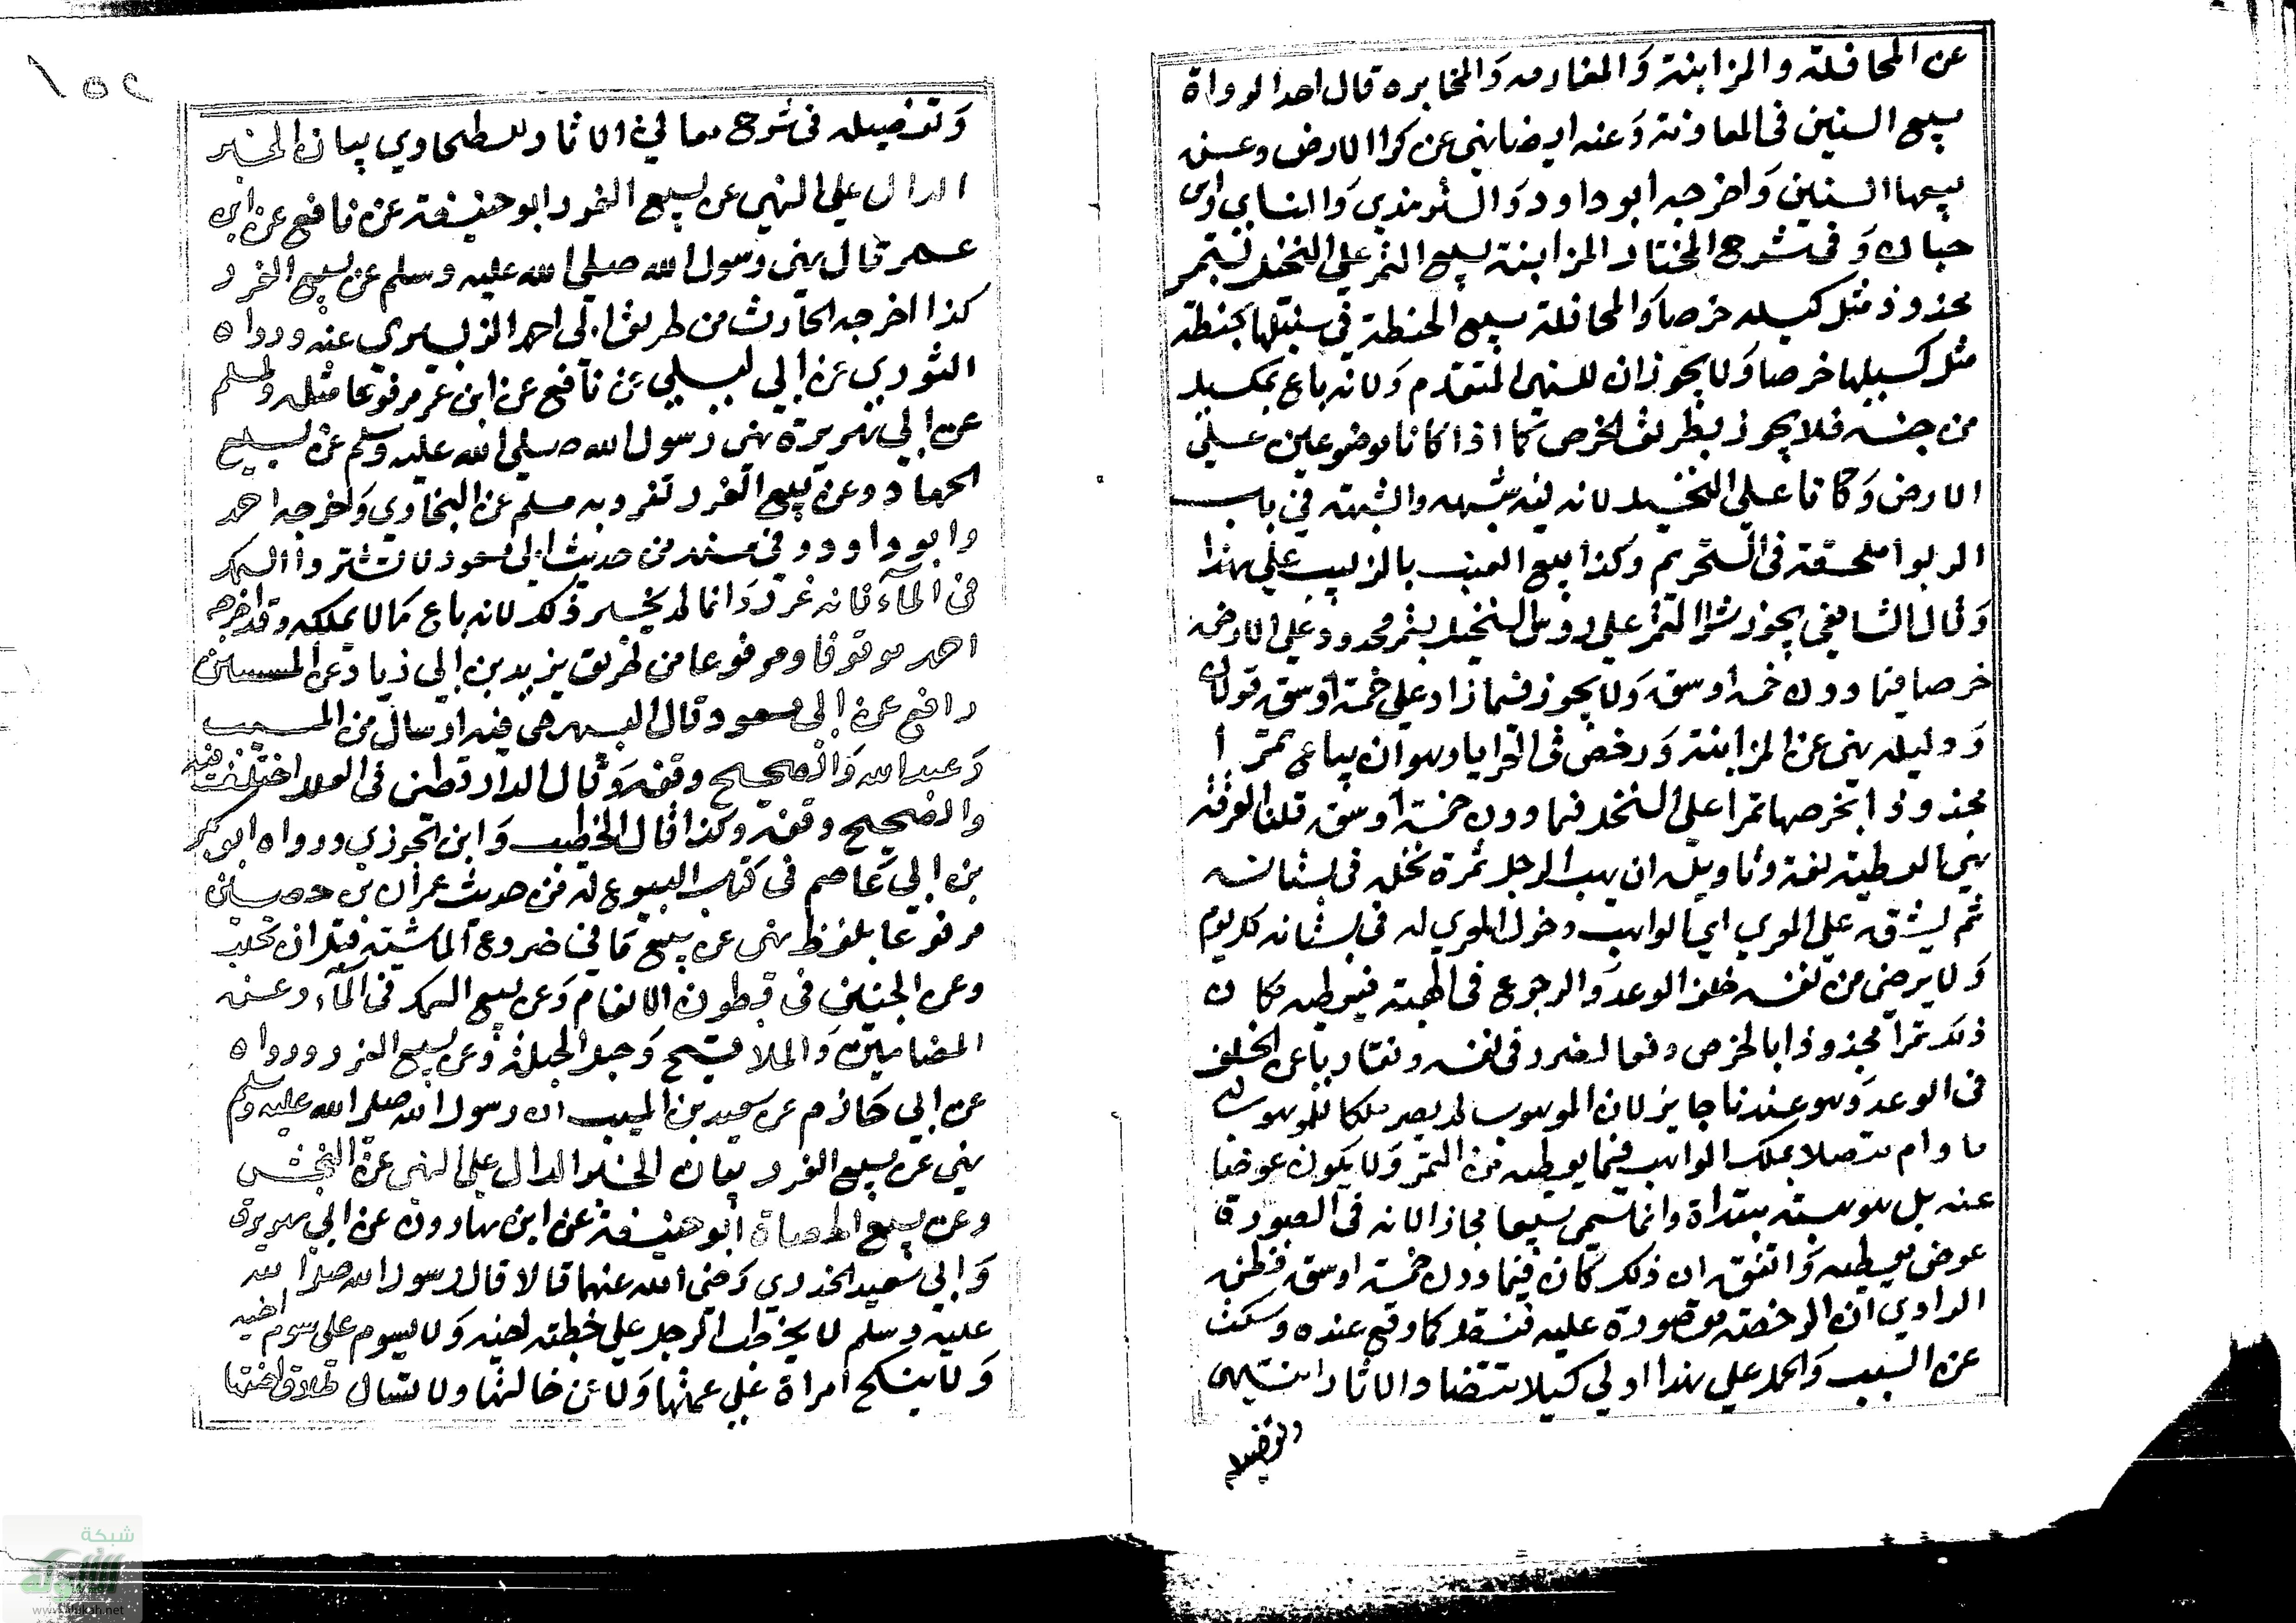 عن المحاقلة والمزابنة والمعاومه والمخابره قال احد الرواة
بيع السنين فى المعاومة وعنه ايضا نهى عن كرا الارض وعن
بيعها السنين واخرجه ابو داود والترمذي والنساي وابن
حبان وفى شرح المختار المزابنة بيع الثمر على النخل بتمر
مجذوذ مثل كيله خرصا والمحاقلة بيع الحنطة في سنبلها بحنطة
مثل كيلها خرصا ولا يجوزان للنهى المتقدم ولانه باع بمكيل
من جنسه فلا يجوز بطريق الخرص كما اذا كانا موضوعين على
الارض وكانا على النخيل لانه فيه شبهه والشبهة في باب
الربوا ملحقة فى التحريم وكذا بيع العنب بالزبيب على هذا
وقال الشافعي يجوز شرا التمر على روس النخيل بتمر مجدود على الارض
خرصا فيما دون خمسة اوسق ولا يجوز فيما زاد على خمسة اوسق قولان
ودليله نهى عن المزابنة ورخص فى العرايا وهو ان يباع تمرا
مجذوذا بخرصها تمرا على النخل فيما دون خمسة اوسق قلنا العرية
هي العطية لغة وتاويله ان يهب الرجل ثمرة نخله فى بستانه
ثم يشق على المعري اي الواهب دخول المعري له فى بستانه كل يوم
ولا يرضى من نفسه خلف الوعد والرجوع فى الهبة فيعطيه مكان
ذلك تمرا مجذوذا بالخرص دفعا لضرر فى نفسه وتفاديا عن الخلف
فى الوعد وهو عندنا جايز لان الموهوب لم يصر ملكا للموهوب له
ما دام متصلا بملك الواهب فيما يعطيه من التمر ولا يكون عوضا
عنه بل هو هبة مبتداة وانما سمي بيعا مجازا لانه فى الصورة
عوض يعطيه واتفق ان ذلك كان فيما دون خمسة اوسق فظن
الراوي ان الرخصة مقصورة عليه فنقل كما وقع عنده وسكت
عن السبب والحمل على هذا اولي كيلا تتضاد الاثار انتهى
وتفصيله
١٥٢
وتفصيله فى شرح معاني الاثار للطحاوي بيان الخبر
الدال على النهى عن بيع الغرر ابو حنيفة عن نافع عن ابن
عمر قال نهى رسول الله صلى الله عليه وسلم عن بيع الغرر
كذا اخرجه الحارث من طريق ابى احمد الزبيري عنه ورواه
الثوري عن ابي ليلي عن نافع عن ابن عمر مرفوعا مثله ولمسلم
عن ابي هريرة نهى رسول الله صلى الله عليه وسلم عن بيع
الحصاة وعن بيع الغرر تفرد به مسلم عن البخاري واخرجه احمد
وابو داود وفى مسند من حديث ابى مسعود لا تشتروا السمك
فى الماء فانه غرر وانما لم يجز ذلك لانه باع ما لا يملكه وقد اخرجه
احمد موقوفا ومرفوعا من طريق يزيد بن ابي زياد عن المسيب بن
رافع عن ابى مسعود قال البيهقى فيه ارسال من المسيب
وعبد الله والصحيح وقفه وقال الدارقطنى فى العلل اختلف فيه
والصحيح وقفه وكذا قال الخطيب وابن الجوزي ورواه ابو بكر
بن ابي عاصم فى كتاب البيوع له من حديث عمران بن حصين
مرفوعا بلفظ نهى عن بيع ما في ضروع الماشية قبل ان تحلب
وعن الجنين فى بطون الانعام وعن بيع السمك فى الماء وعن
المضامين والملاقيح وحبل الحبلة وعن بيع الغرر ورواه
عن ابي حازم عن سعيد بن المسيب ان رسول الله صلى الله عليه وسلم
نهي عن بيع الغرر بيان الخبر الدال على النهى عن النجش
وعن بيع الحصاة ابو حنيفة عن ابن هارون عن ابي هريرة
وابي سعيد الخدري رضى الله عنهما قالا قال رسول الله صلى الله
عليه وسلم لا يخطب الرجل على خطبة اخيه ولا يسوم على سوم اخيه
ولا ينكح امراة على عمتها ولا عن خالتها ولا تسال طلاق اختها
شبكة
الألوكة
www.alukah.net